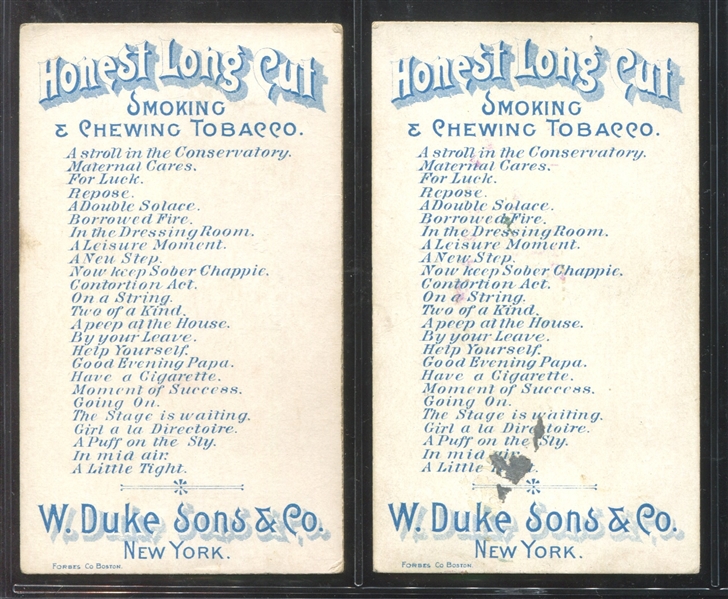 Honest Long Cut
Smoking
& Chewing Tobacco.
A stroll in the Conservatory.
Maternal Cares.
For Luck.
Repose.
A Double Solace.
Borrowed Fire.
In the Dressing Room.
A Leisure Moment.
A New Step.
Now keep Sober Chappie.
Contortion Act.
On a String.
Two of a Kind.
A peep at the House.
By your Leave.
Help Yourself.
Good Evening Papa.
Have a Cigarette.
Moment of Success.
Going On.
The Stage is waiting.
Girl a la Directoire.
A Puff on the Sly.
In mid air.
A Little Tight.
W. Duke Sons & Co.
New York.
Forbes Co Boston.
Honest Long Cut
Smoking
& Chewing Tobacco.
A stroll in the Conservatory.
Maternal Cares.
For Luck.
Repose.
A Double Solace.
Borrowed Fire.
In the Dressing Room.
A Leisure Moment.
A New Step.
Now keep Sober Chappie.
Contortion Act.
On a String.
Two of a Kind.
A peep at the House.
By your Leave.
Help Yourself.
Good Evening Papa.
Have a Cigarette.
Moment of Success.
Going On.
The Stage is waiting.
Girl a la Directoire.
A Puff on the Sly.
In mid air.
A Little
W. Duke Sons & Co.
New York.
Forbes Co Boston.